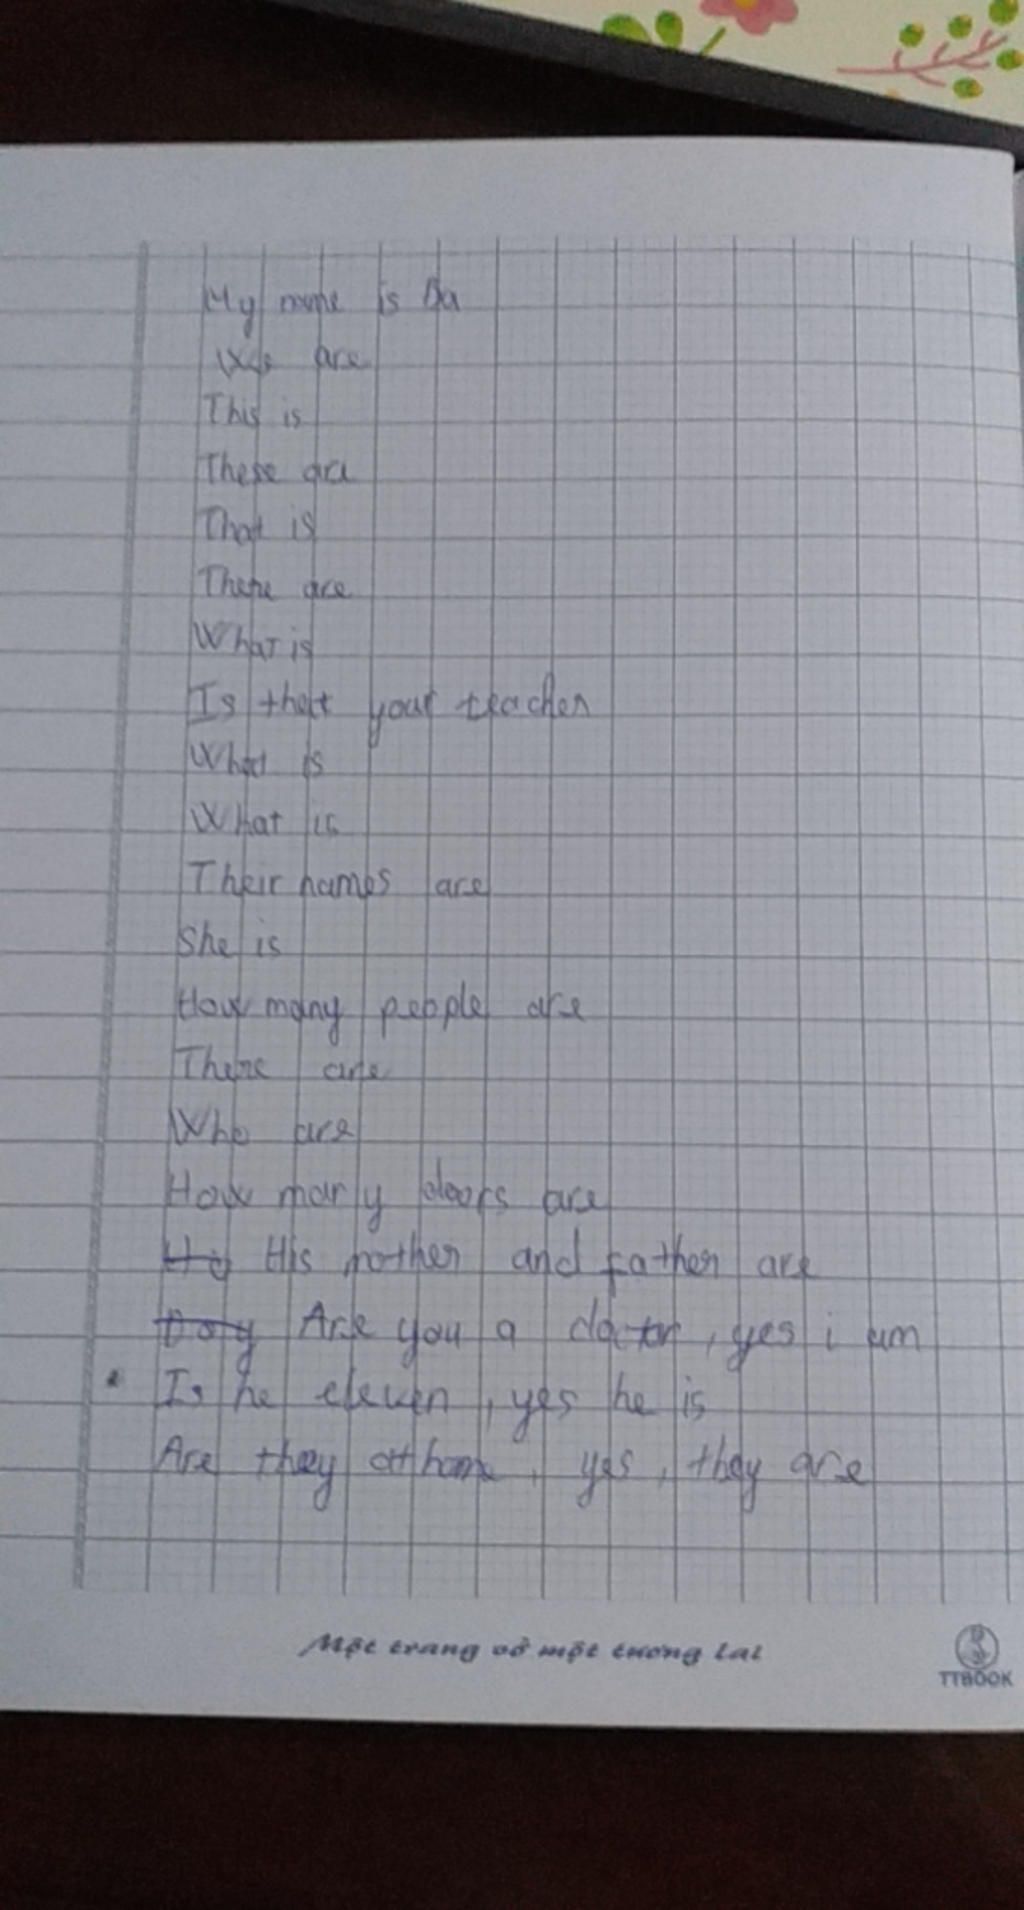 My name is Ba
We are
This is
These are
That is
There are
What is
Is that your teacher
What is
What is
Their names are
She is
How many people are
There are
Who are
How many doors are
His mother and father are
Are you a doctor, yes i am
Is he eleven, yes he is
Are they at home, yes, they are
Một trang vở một tương lai
TTBOOK